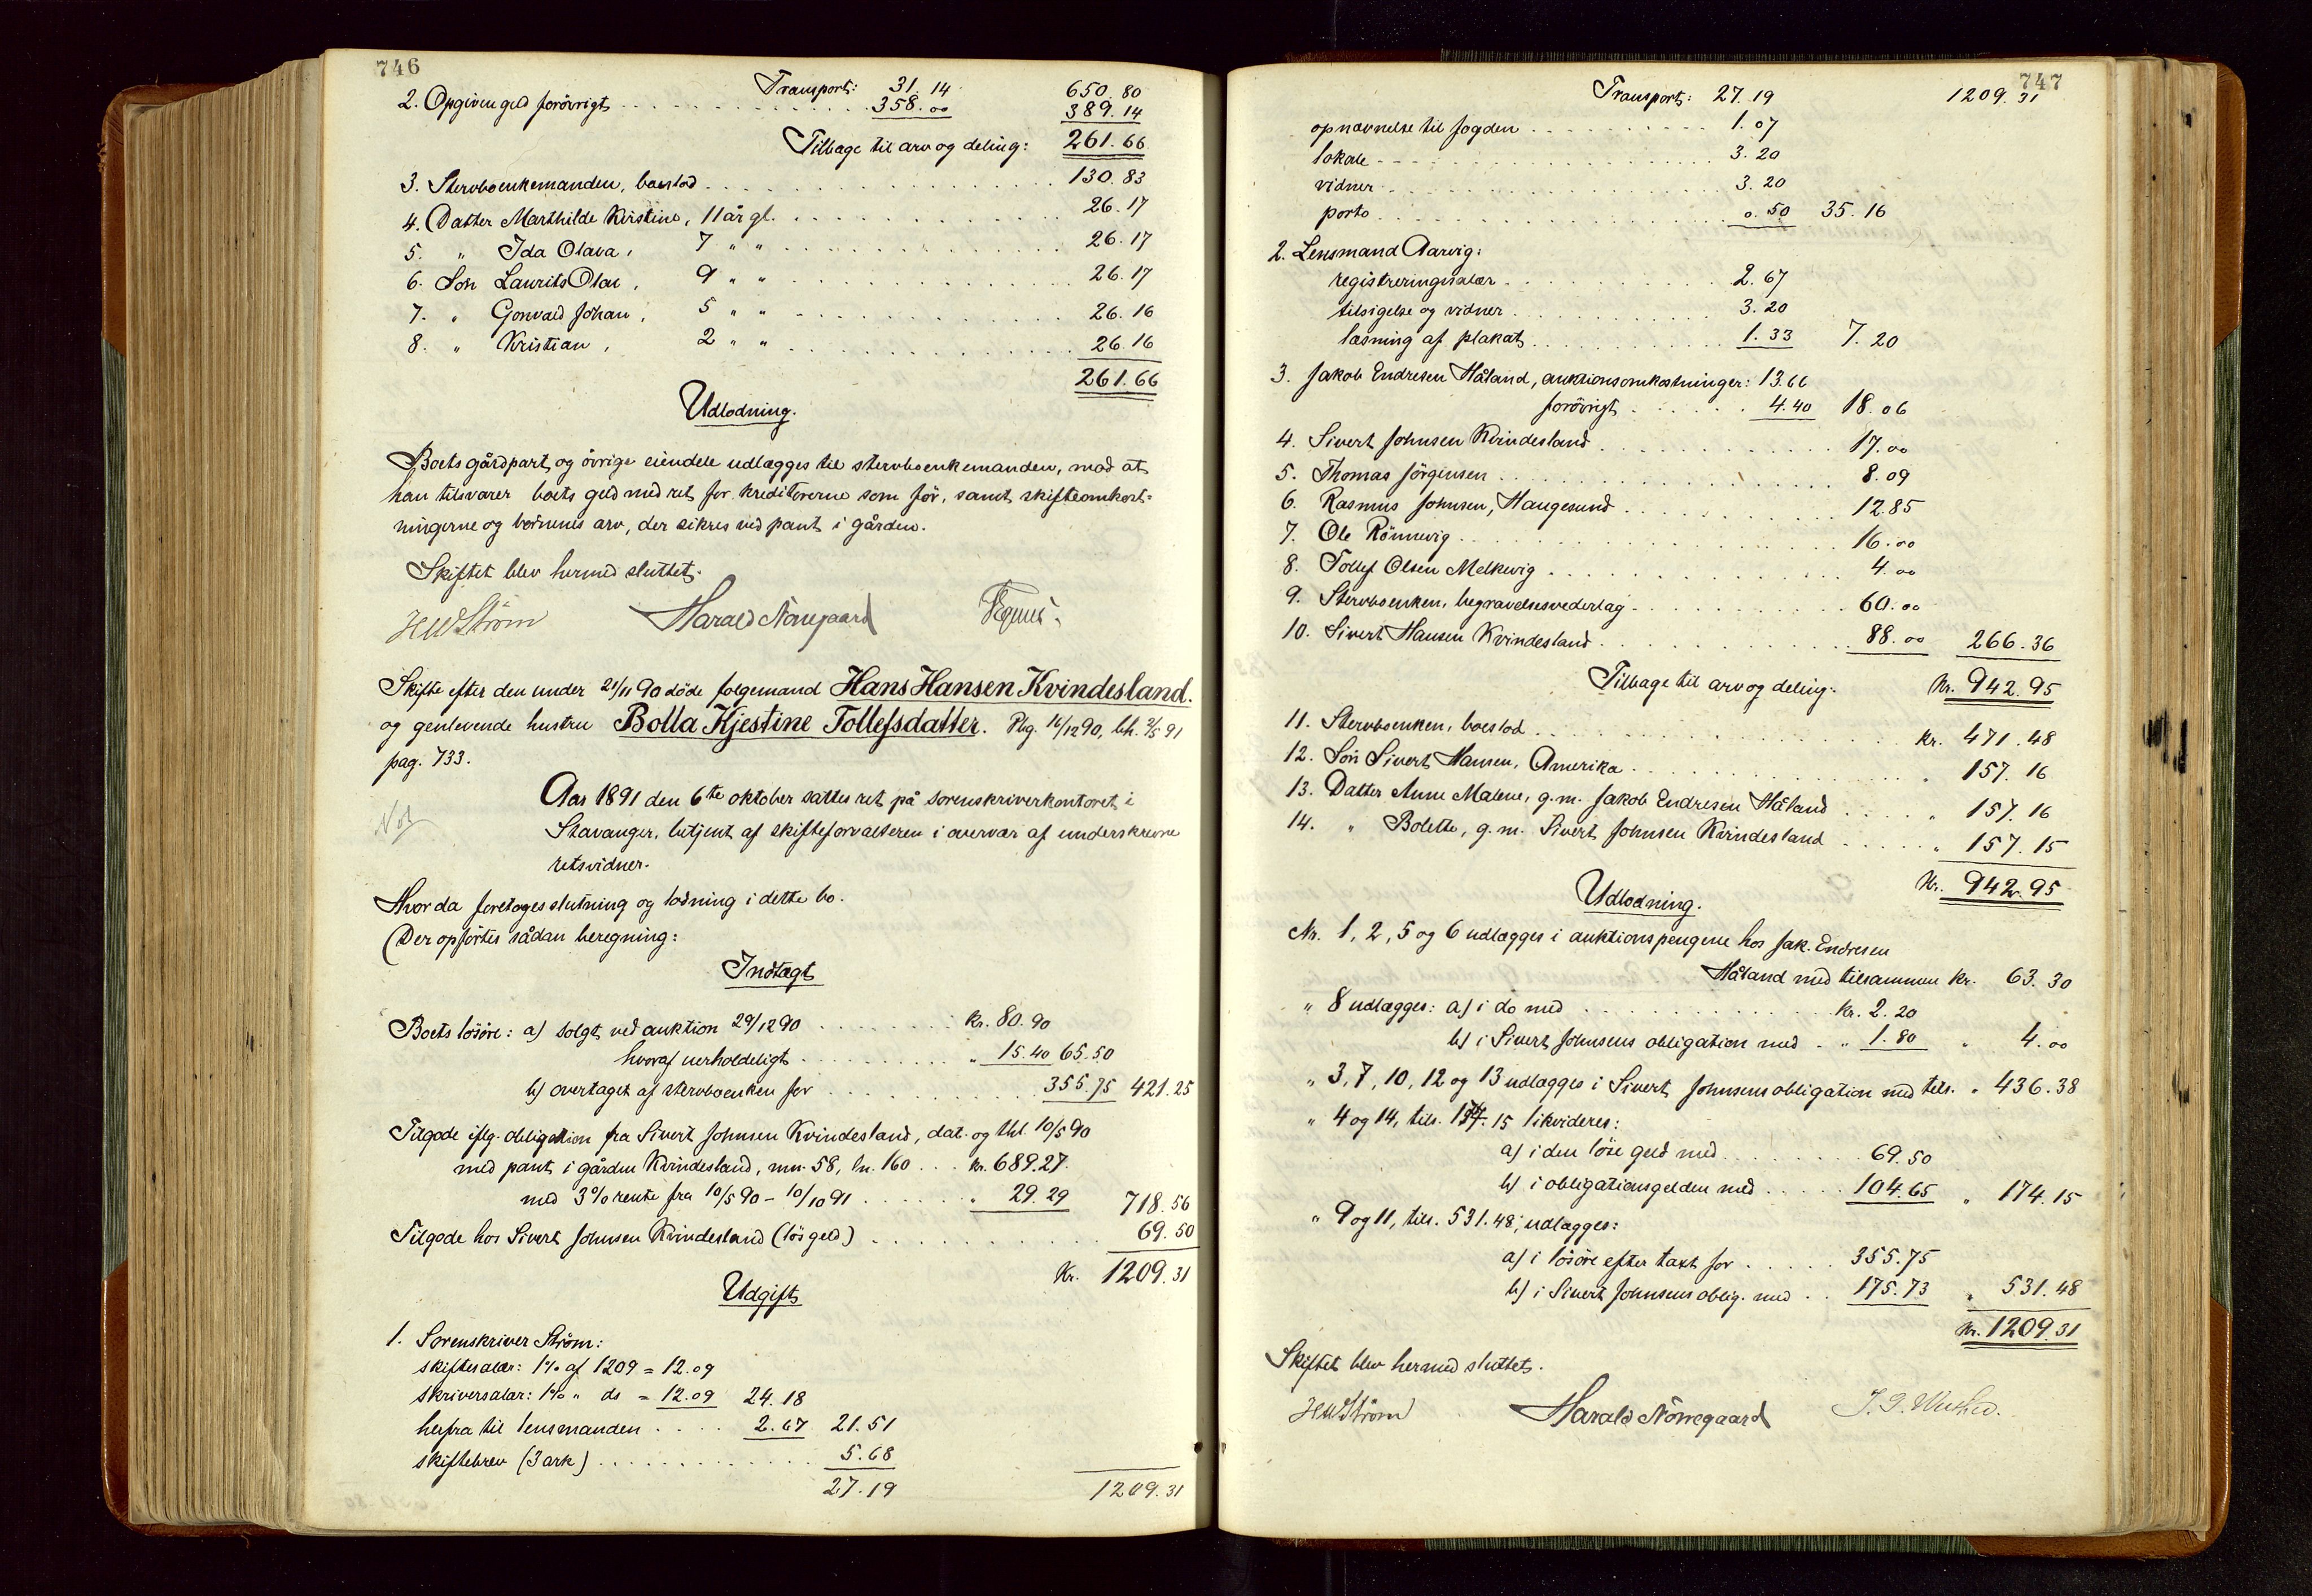 746
Transport: 31.14 650.80
2. Opgiven gæld forövrigt 358.00 389.14
Tilbage til arv og deling: 261.66
3. Stervboenkemanden, boeslod 130.83
4. Datter Marthilde Kristine, 11 år gl. 26.17
5. " Ida Olava, 7 " " 26.17
6. Sön Laurits Olai, 9 " " 26.17
7. " Gonvald Johan, 5 " " 26.16
8. " Kristian, 2 " " 26.16
261.66
Udlodning.
Boets gårdpart og övrige eiendele udlægges til stervboenkemanden, mod at
han tilsvarer boets gæld med ret for kreditorerne som för, samt skifteomkost-
ningerne og börnenes arv, der sikres ved pant i gården.
Skiftet blev hermed sluttet.
HWStröm Harald Nörregaard
Skifte efter den under 21/11 90 döde folgemand Hans Hansen Kvindesland.
og genlevende hustru Bolla Kjestine Tollefsdatter. Pbg. 16/12 90, bh. 2/5 91
pag. 733.
Aar 1891 den 6te oktober sattes ret på sorenskriverkontoret i
Stavanger, betjent af skifteforvalteren i overvær af underskrevne
retsvidner.
Hvorda foretoges slutning og lodning i dette bo.
Der opförtes sådan beregning:
Indtægt
Boets lösöre: a) solgt ved auktion 29/12 90 kr. 80.90
hvoraf uerholdeligt " 15.40 65.50
b) overtaget af stervboenken for 355.75 421.25
Tilgode iflg. obligation fra Sivert Johnsen Kvindesland, dat. og thl. 10/5 90
med pant i gården Kvindesland, mn. 58, ln. 160 kr. 689.27.
med 3% rente fra 10/5 90 - 10/10 91 " 29.29 718.56
Tilgode hos Sivert Johnsen Kvindesland (lös gæld) 69.50
Kr. 1209.31
Udgift
1. Sorenskriver Ström:
skiftesalær: 1% af 1209 = 12.09
skriversalær: 1% " do = 12.09 24.18
herfra til lensmanden 2.67 21.51
skiftebrev (3 ark) 5.68
27.19 1209.31
747
Transport: 27.19 1209.31
opnævnelse til fogden 1.07
lokale 3.20
vidner 3.20
porto 0.50 35.16
2. Lensmand Aarvig:
registreringssalær 2.67
tilsigelse og vidner 3.20
læsning af plakat 1.33 7.20
3. Jakob Endresen Håland, auktionsomkostninger: 13.66
forövrigt 4.40 18.06
4. Sivert Johnsen Kvindesland 17.00
5. Thomas Jörgensen 8.09
6. Rasmus Johnsen, Haugesund 12.85
7. Ole Rönnevig 16.00
8. Tollef Olsen Melkevig 4.00
9. Stervboenken, begravelsesvederlag 60.00
10. Sivert Hansen Kvindesland 88.00 266.36
Tilbage til arv og deling: Kr. 942.95
11. Stervboenken, boeslod kr. 471.48
12. Sön Sivert Hansen, Amerika " 157.16
13. Datter Anne Malene, g.m. Jakob Endresen Håland " 157.16
14. " Bolette, g.m. Sivert Johnsen Kvindesland " 157.15
Kr. 942.95
Udlodning.
Nr. 1, 2, 5 og 6 udlægges i auktionspengene hos Jak. Endresen
Håland med tilsammen kr. 63.30
" 8 udlægges: a) i do med kr. 2.20
b) i Sivert Johnsens obligation med " 1.80 " 4.00
" 3, 7, 10, 12 og 13 udlægges i Sivert Johnsens obligation med tils. " 436.38
" 4 og 14, tils. 174.15 likvideres:
a) i den löse gæld med 69.50
b) i obligationsgælden med 104.65 " 174.15
" 9 og 11, tils. 531.48, udlægges:
a) i lösöre efter taxt for 355.75
b) i Sivert Johnsens oblig. med 175.73 " 531.48
Kr. 1209.31
Skiftet blev hermed sluttet.
HWStröm Harald Nörregaard